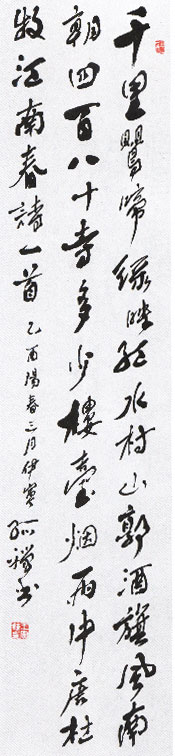 千里鶯啼綠映紅水村山郭酒旗風南
朝四百八十寺多少樓臺烟雨中唐杜
牧江南春詩一首
乙酉陽春三月伊賓孤禪书